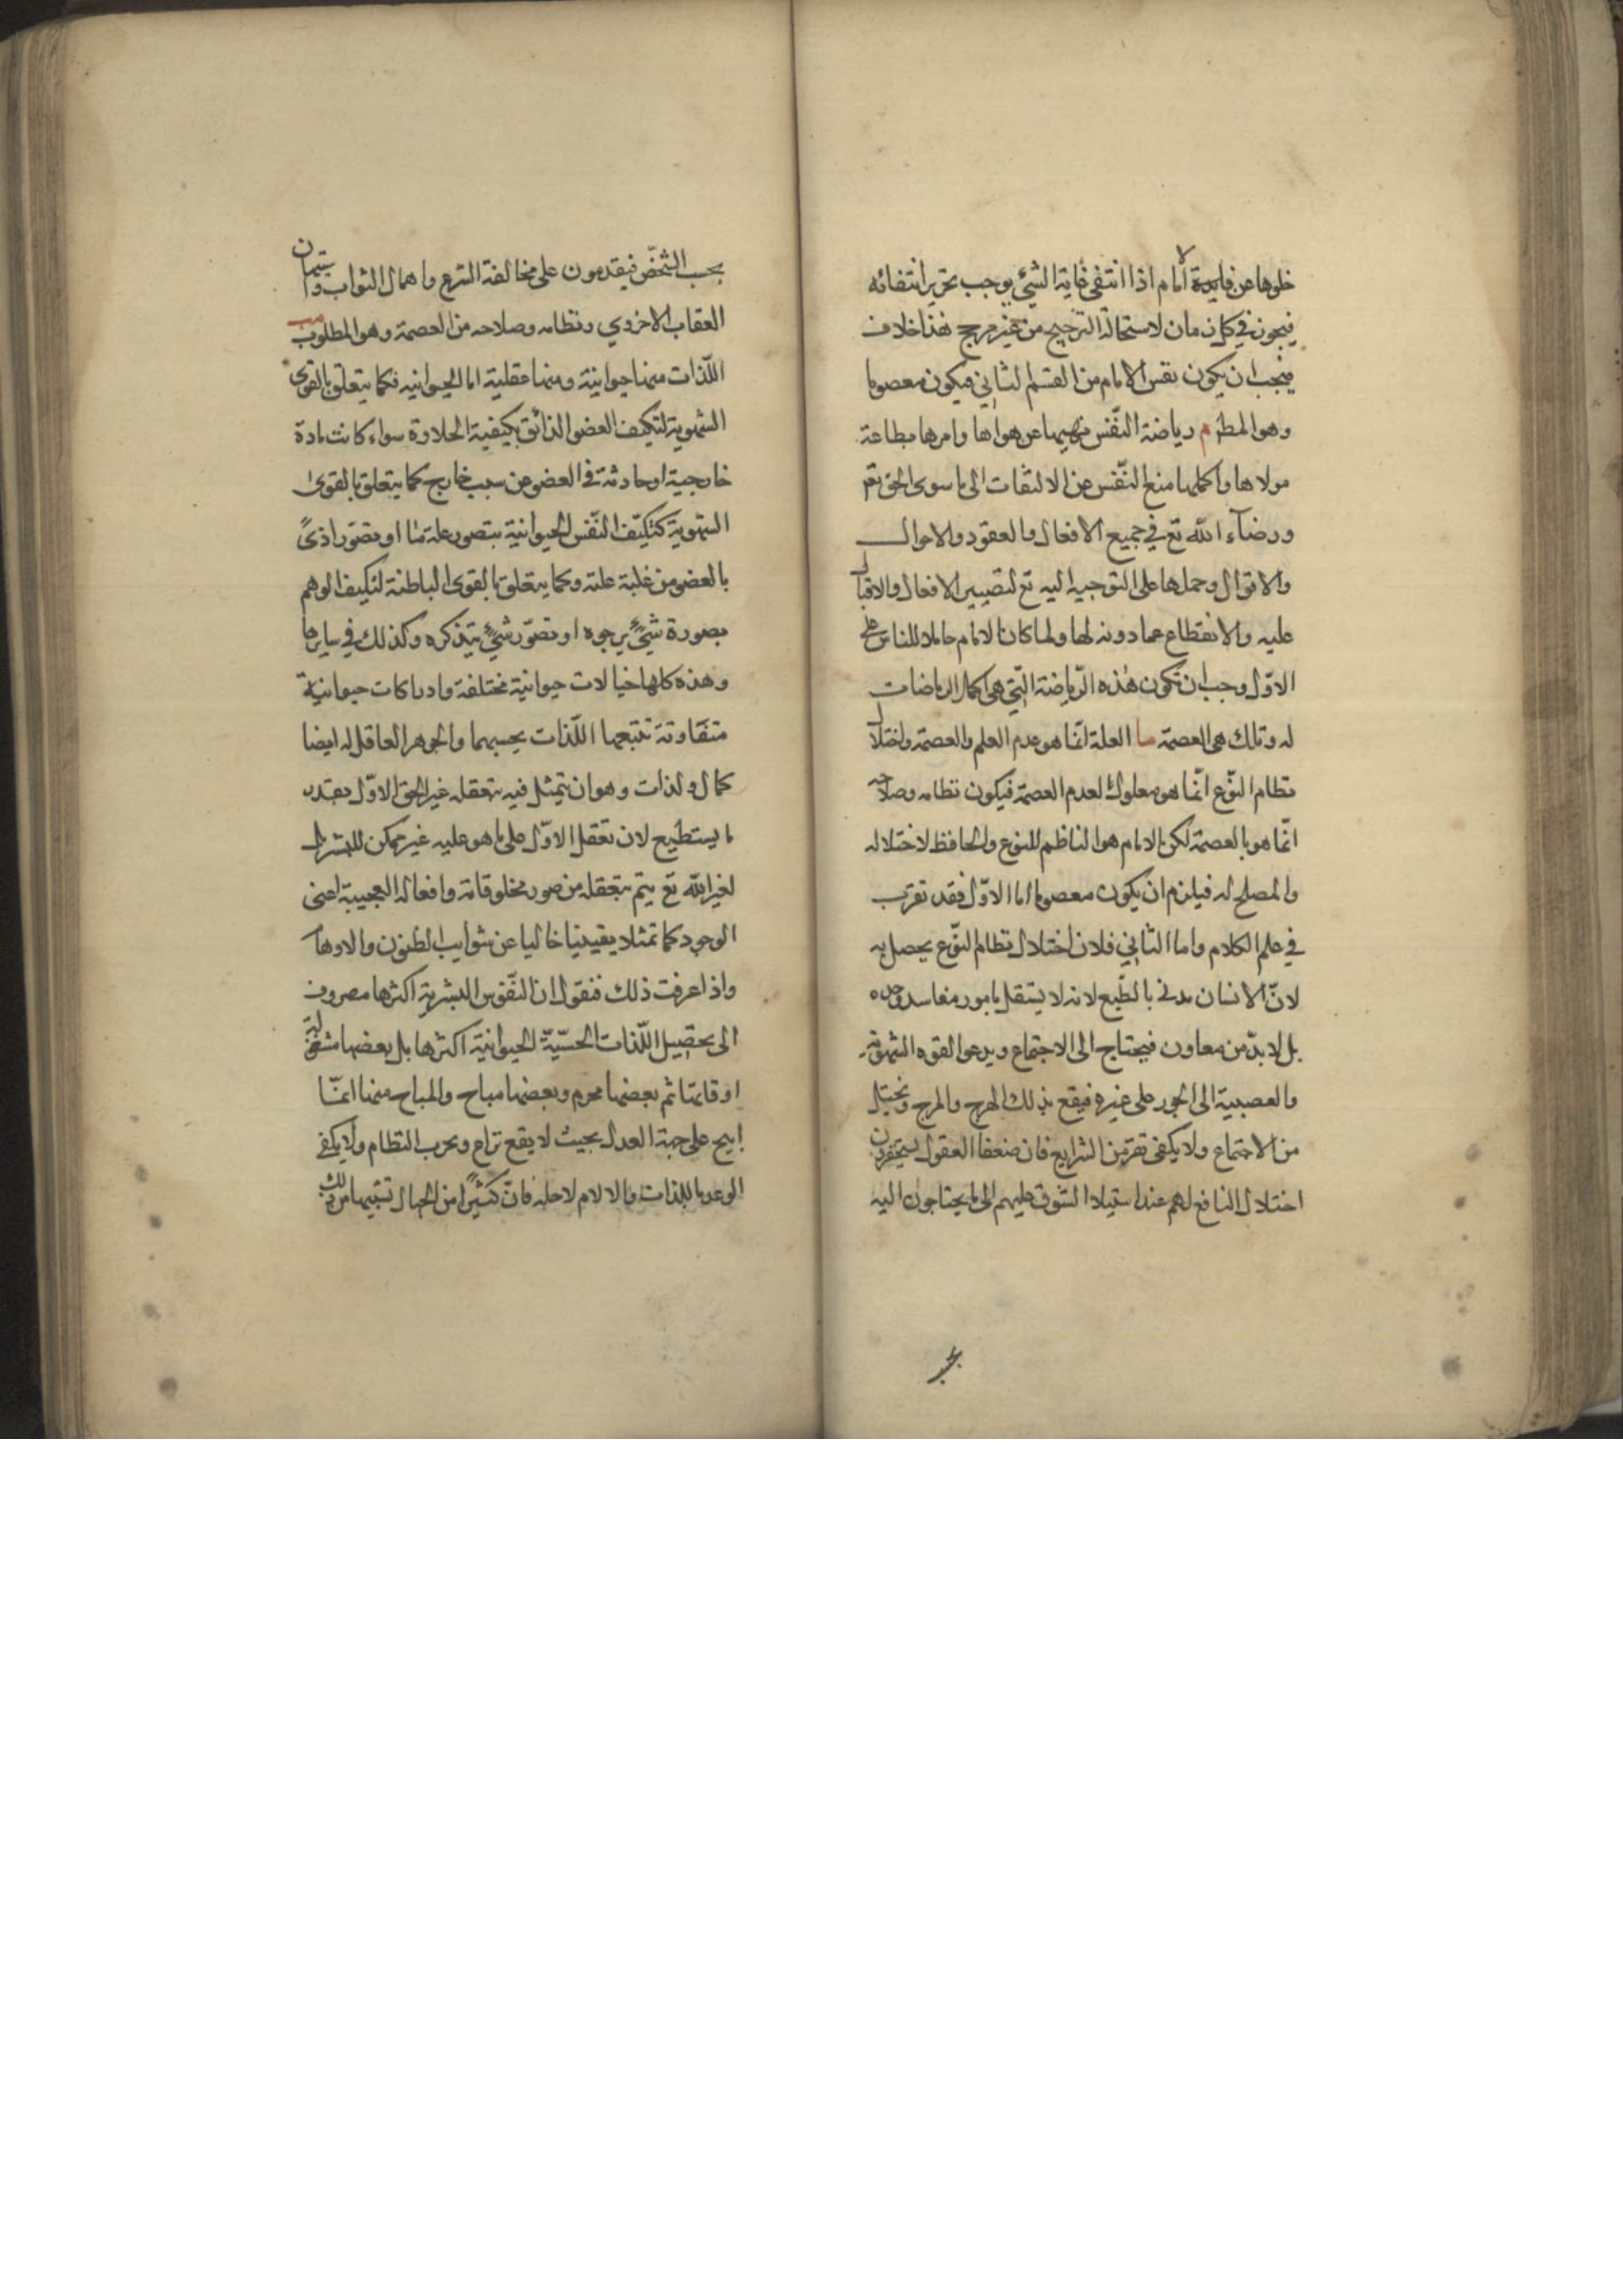 خلوها عن فايدة الامام اذا انتفى غاية الشئ يوجب تحرير انتفائه
فيجوز في كل زمان لاستحالة الترجيح من غير مرجح هذا خلاف
فيجب ان يكون نفس الامام من القسم الثاني فيكون معصوما
وهو المط م رياضة النّفس نهيها عن هواها وامرها بطاعة
مولاها واكملها منع النّفس عن الالتفات الى ما سوى الحق تع
ورضآء اللّه تع في جميع الافعال والعقود والاحوال
والاقوال وحملها على التوجيه اليه تع لتصيير الافعال والاقبال
عليه والانقطاع عما دونه لها ولما كان الامام حاملا للناس على
الاوّل وجب ان تكون هذه الرّياضة التّي هي اكمل الرياضات
له وتلك هي العصمة سا العلة انّما هو عدم العلم والعصمة واختلال
نظام النوّع انّما هو معلول لعدم العصمة فيكون نظامه وصلاحه
انّما هو بالعصمة لكن الامام هو الناظم للنوع والحافظ لاختلاله
والمصلح له فيلزم ان يكون معصوما اما الاوّل فقد تقرب
في علم الكلام واما الثاني فلان اختلال نظام النوّع يحصل به
لانّ الانسان مدني بالطّبع لانه لا يستقل بامور معاسه وحده
بل لابدّ من معاون فيحتاج الى الاجتماع ويدعو القوه الشهويّة
والعصبية الى الجور على غيره فيقع بذلك الهرج والمرج ونحيتل
من الاجتماع ولا يكفي تقرير الشرايع فان ضعفا العقول يستحقرون
اختلال النافع لهم عند استيلاء الشوق عليهم الى ما يحتاجون اليه
بحسب
بحسب الشّخص فيقدمون على مخالفة الشرع واهمال الثواب واستيمان
العقاب الاخروي ونظامه وصلاحه من العصمة وهو المطلوب
اللّذات منها حيوانية ومنها عقلية اما الحيوانيه فكما يتعلق بالقوى
الشهوية لتكيف العضو الذائق بكيفية الحلاوة سواء كانت مادة
خارجية او حادثة في العضو عن سبب خارج كما يتعلق بالقوى
الشهوية كتكيّف النّفس الحيوانية بتصور علة مّا او تصوّر اذىً
بالعضو من غلبة علته وكما يتعلق بالقوى الباطنة لتكيف الوهم
بصورة شئٍ يرجوه او تصوّر شئٍ يتذكره وكذلك في سايرها
وهذه كلها خيالات حيوانية مختلفة وادراكات حيوانية
متفاوتة تتبعها اللّذات بحسبهما والجوهر العاقل له ايضا
كمال ولذات وهو ان يتمثل فيه بتعقله غير الحق الاوّل بقدر
ما يستطيع لان تعقل الاوّل على ما هو عليه غير ممكن للبشر بل
لغير اللّه تع يتم بتعقله من صور مخلوقاته وافعاله العجيبة اعنى
الوجود كما تمثلا يقينيا خاليا عن شوايب الظنون والاوهام
واذا عرفت ذلك فنقول ان النّفوس البشرية اكثرها مصروف
الى تحصيل اللّذات الحسّيّة الحيوانية اكثرها بل بعضها مشغولة
اوقاتها ثم بعضها محرم وبعضها مباح والمباح منها انمّا
ابيح على جهة العدل بحيث لا يقع نزاع ويخرب النظام ولا يكفي
الوعد باللذات والالام لاحله فانّ كثيرًا من الجهال تستيها من ذلك